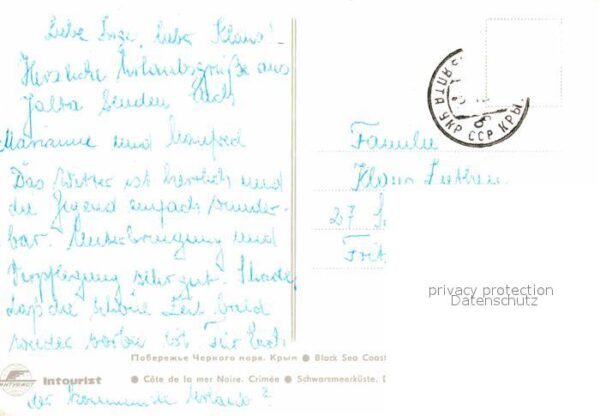 Liebe Inge, lieber Klaus! -
Herzliche Urlaubsgrüße aus
Jalta senden Euch
Marianne und Manfred
Das Wetter ist herrlich und
die Gegend einfach wunder-
bar. Unterbringung und
Verpflegung sehr gut. Schade,
daß die schöne Zeit bald
wieder vorbei ist. Für Euch
der kommende Urlaub?
ЯЛТА УКР ССР КРЫ.
Familie
Klaus
27
Fritz
privacy protection
Datenschutz
Побережье Черного моря. Крым ● Black Sea Coast
ИНТУРИСТ Intourist ● Côte de la mer Noire. Crimée ● Schwarzmeerküste.